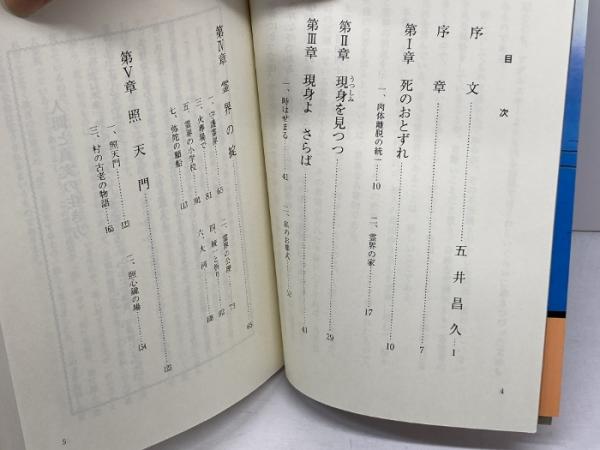 目次
序文……五井昌久…1
序章……7
第Ⅰ章 死のおとずれ……10
一、肉体離脱の統一……10
二、霊界の家……17
第Ⅱ章 現身を見つつ……29
うつしみ
第Ⅲ章 現身よ さらば……41
一、時はせまる……41
二、私のお葬式……52
4
第Ⅳ章 霊界の掟……65
一、守護霊界……65
二、霊界の公理……73
三、火葬場で……81
四、統一と祈り……92
五、霊界の小学校……101
六、大河……108
七、弥陀の願船……113
第Ⅴ章 照天門……122
一、照天門……122
二、照心鏡の場……134
三、村の古老の物語……160
5